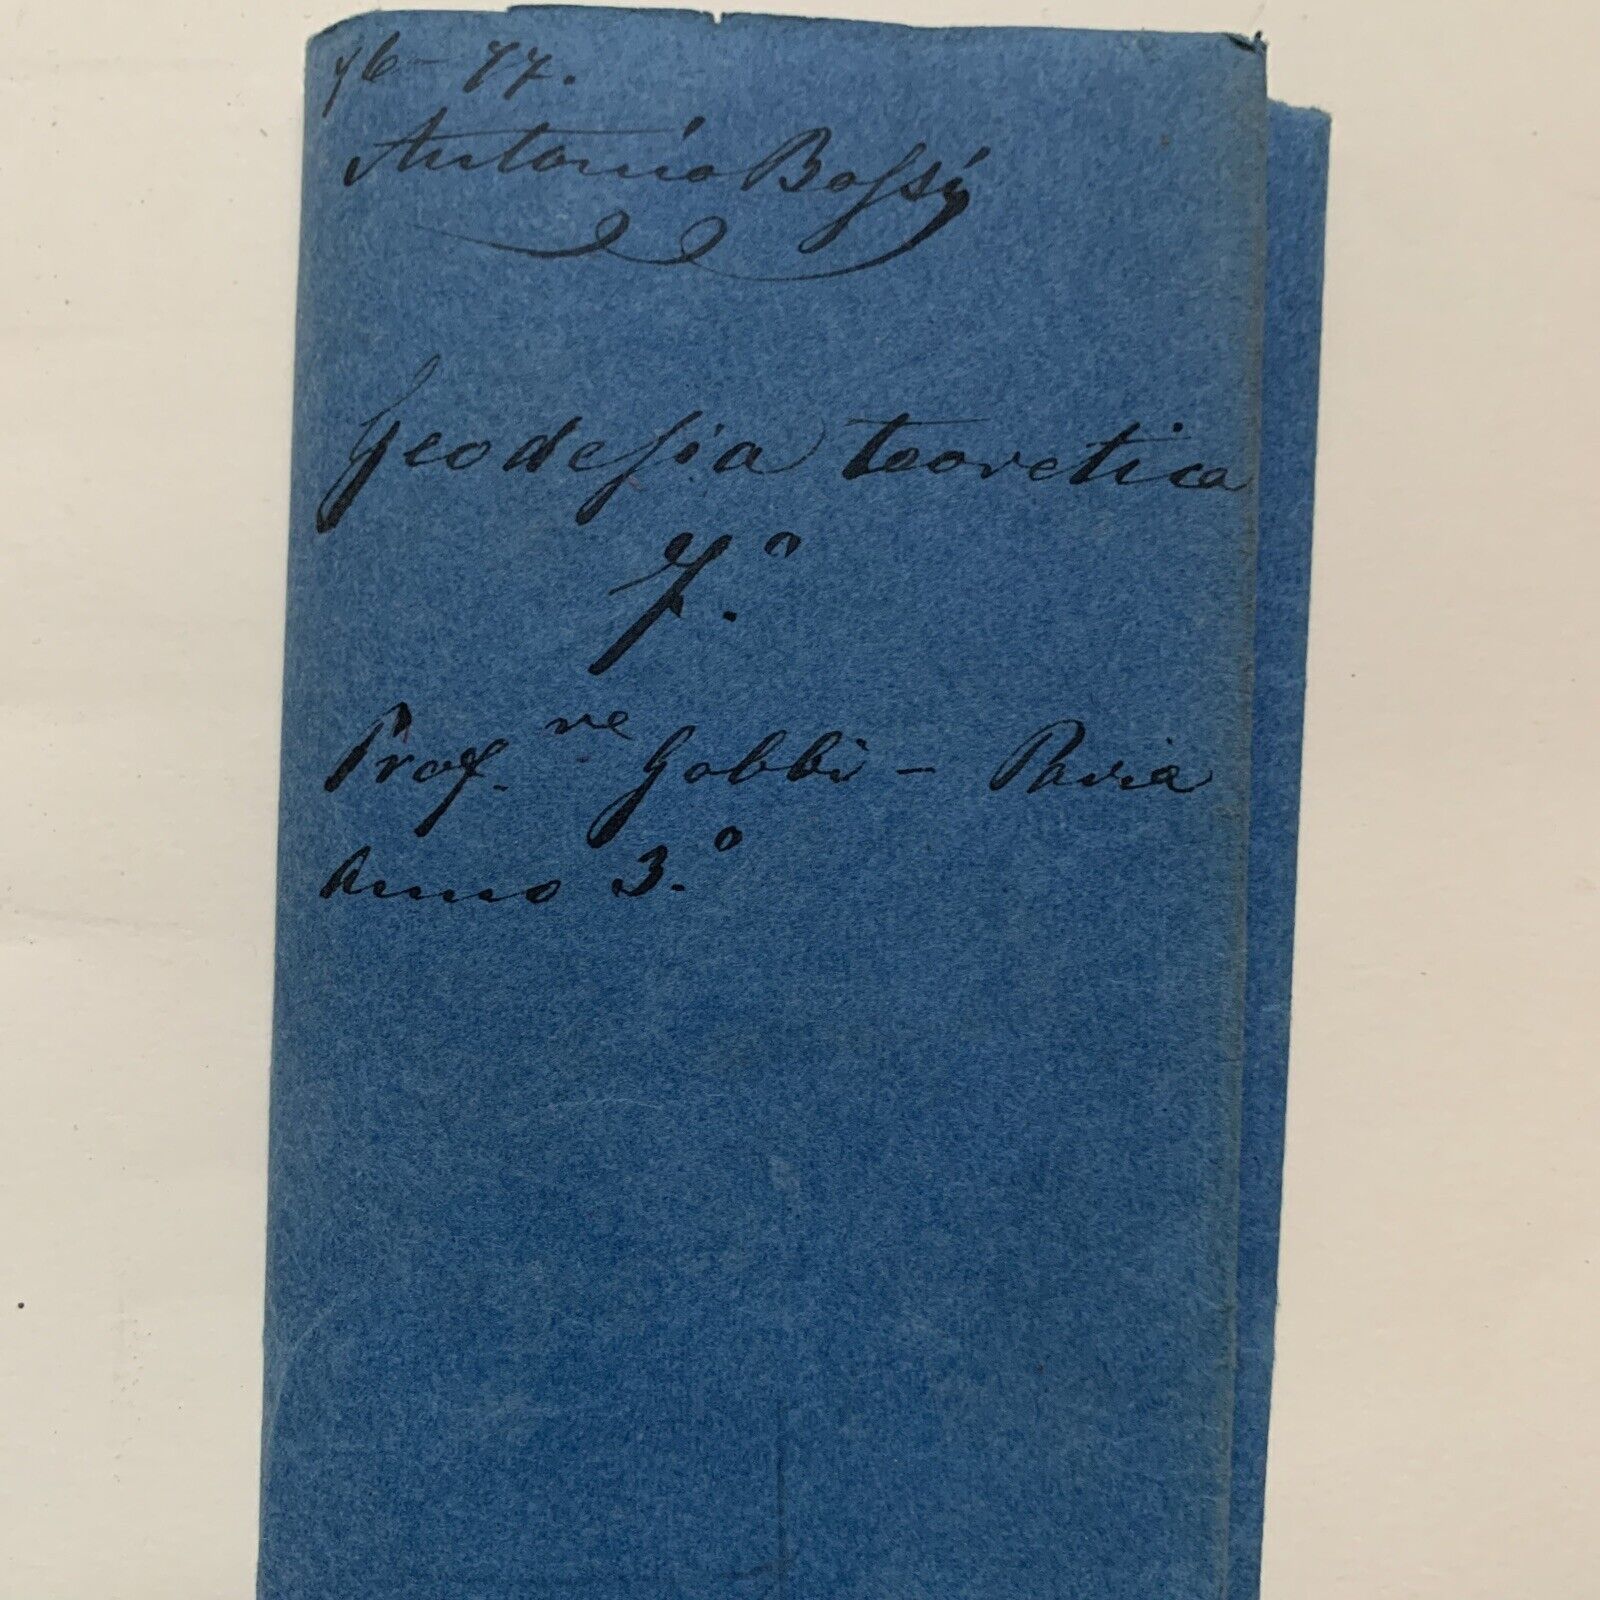 76-77.
Antonio Bossi
Geodesia teoretica
I.°
Prof.re Gobbi - Pavia
Anno 3.°